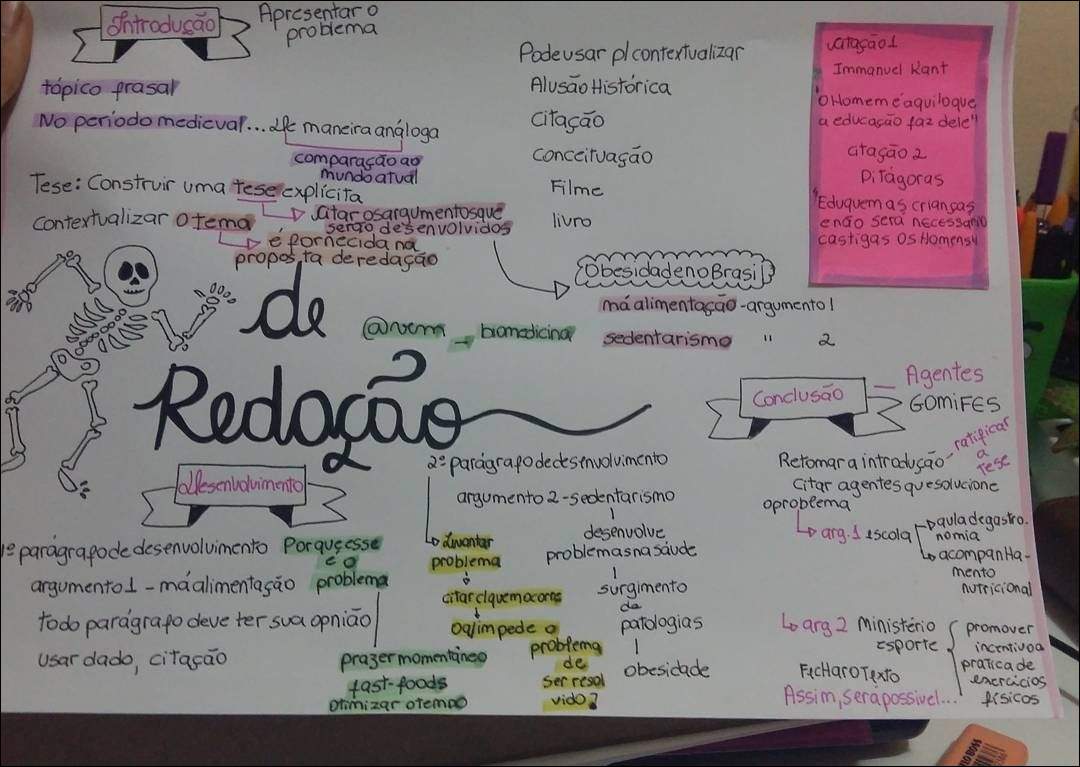 Introdução
Apresentar o
problema
tópico frasal
No período medieval... De maneira análoga
comparação ao
mundo atual
Tese: Construir uma tese explícita
citar os argumentos que
serão desenvolvidos
Contextualizar o tema
é fornecida na
proposta de redação
Pode usar p/ contextualizar
Alusão Histórica
Citação
Conceituação
Filme
livro
Obesidade no Brasil
má alimentação - argumento 1
sedentarismo " 2
citação 1
Immanuel Kant
"O Homem é aquilo que
a educação faz dele"
citação 2
Pitágoras
"Eduquem as crianças
e não será necessário
castigas os Homens"
de
Redação
biomedicina
Desenvolvimento
1º parágrafo de desenvolvimento
argumento 1 - má alimentação
todo parágrafo deve ter sua opnião
usar dado, citação
Por que esse
é o
problema
prazer momentâneo
fast-foods
otimizar o tempo
2º parágrafo de desenvolvimento
argumento 2 - sedentarismo
Levantar
problema
citar c/ quem ocorre
oq/ impede o
problema
de
ser resol
vido?
desenvolve
problemas na saúde
surgimento
de
patologias
obesidade
Conclusão
Agentes
GOMIFES
Retomar a introdução - ratificar
a
tese
Citar agentes que solucione
o problema
arg. 1 escola
aula de gastro-
nomia
acompanha-
mento
nutricional
arg 2 Ministério
Esporte
promover
incentivo a
pratica de
exercícios
físicos
Fechar o Texto
Assim, será possível...